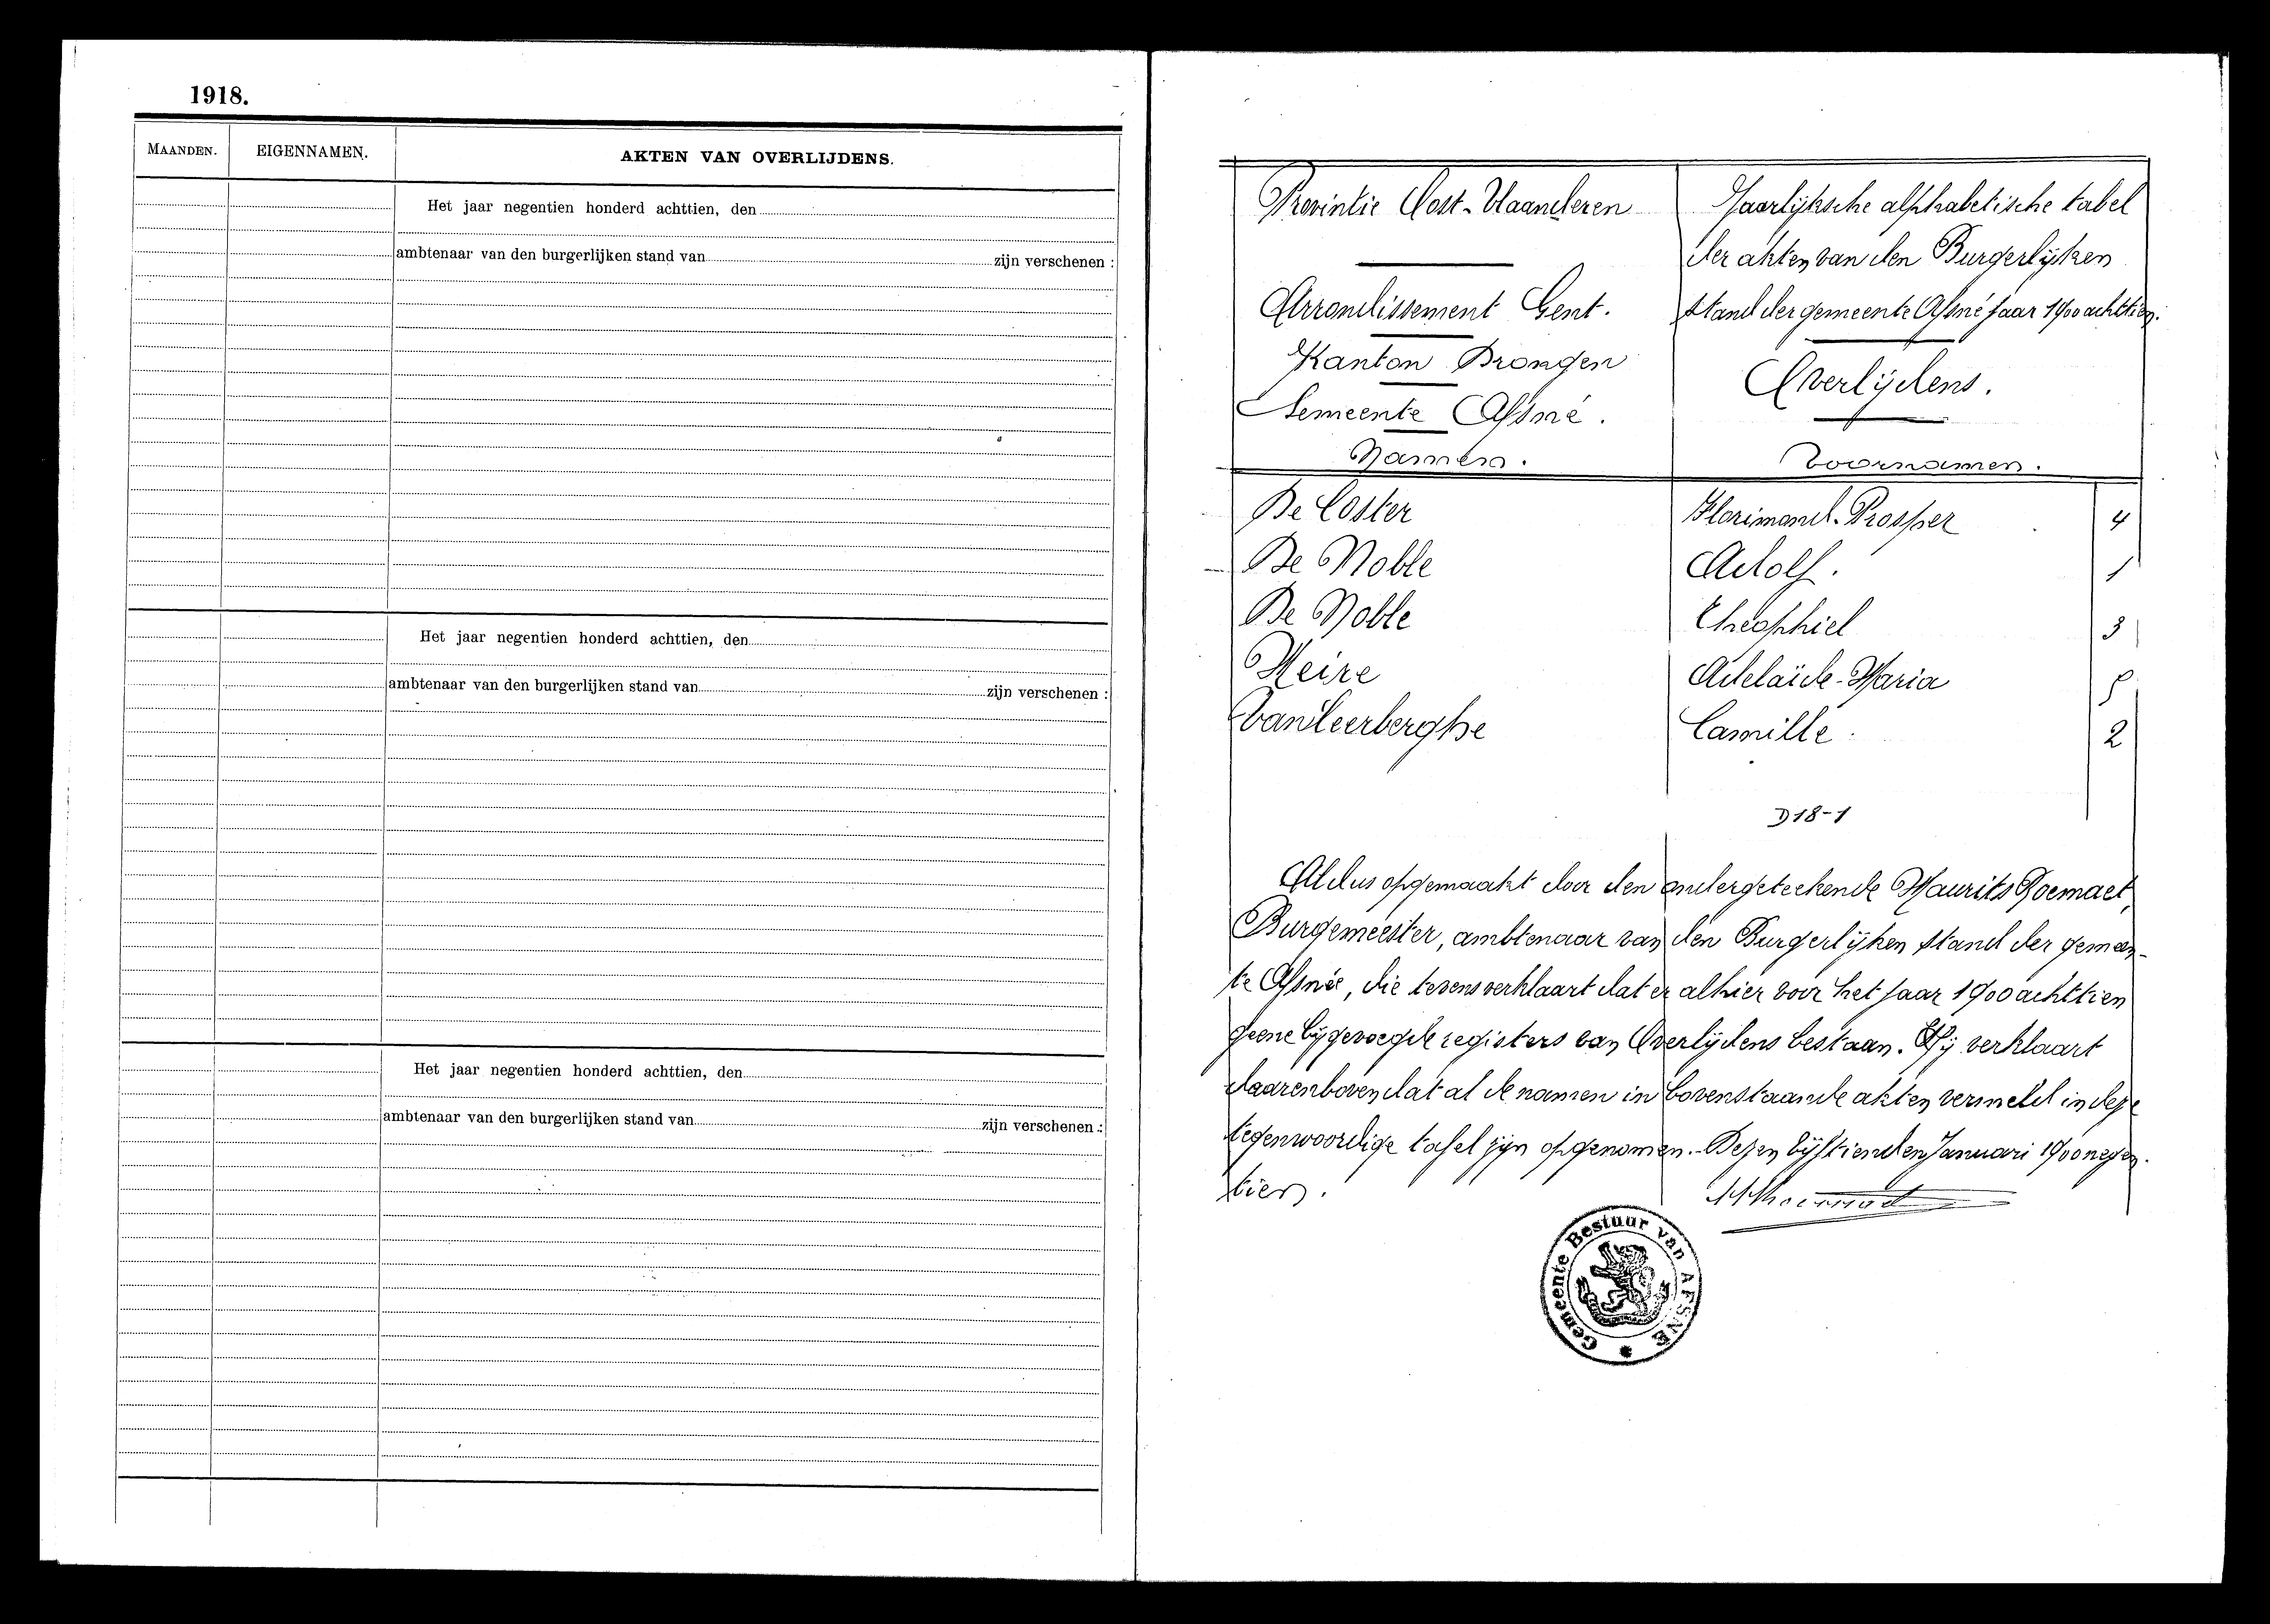 1918.
MAANDEN.
EIGENNAMEN.
AKTEN VAN OVERLIJDENS.
Het jaar negentien honderd achttien, den
ambtenaar van den burgerlijken stand van zijn verschenen :
Het jaar negentien honderd achttien, den
ambtenaar van den burgerlijken stand van zijn verschenen :
Het jaar negentien honderd achttien, den
ambtenaar van den burgerlijken stand van zijn verschenen :
Provintie Oost-Vlaanderen
Arrondissement Gent.
Kanton Drongen
Gemeente Afsné.
Jaarlijksche alphabetische tabel
der akten van den Burgerlijken
stand der gemeente Afsné jaar 1900 achttien.
Overlijdens.
Namen. Voornamen.
De Coster Florimond-Prosper 4
De Noble Adolf. 1
De Noble Theophiel 3
Heire Adelaïde-Maria 5
Van Leerberghe Camille. 2
D18-1
Aldus opgemaakt door den ondergeteekende Maurits Roemaet,
Burgemeester, ambtenaar van den Burgerlijken stand der gemeen-
te Afsnée, die tevens verklaart dat er alhier voor het jaar 1900 achttien
geene bijgevoegde registers van Overlijdens bestaan. Hij verklaart
daarenboven dat al de namen in bovenstaande akten vermeld in deze
tegenwoordige tafel zijn opgenomen. Dezen vijftienden Januari 1900 negen-
tien.
Gemeente Bestuur van AFSNÉ